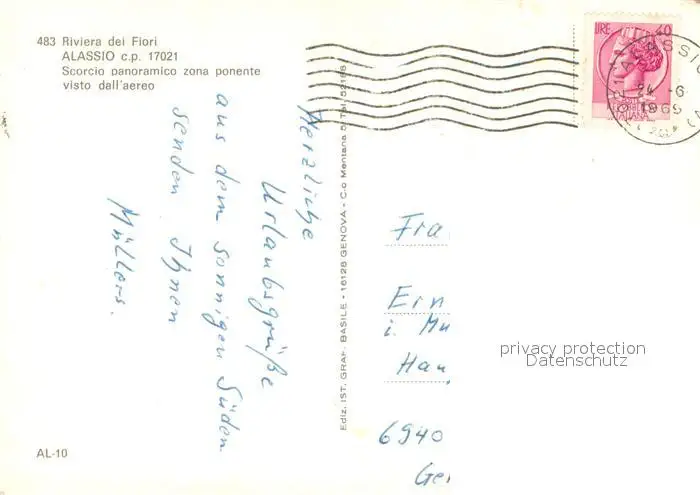 483 Riviera dei Fiori
ALASSIO c.p. 17021
Scorcio panoramico zona ponente
visto dall'aereo
LIRE 40
ITALIANA
1969
Herzliche
Urlaubsgrüße
aus dem sonnigen Süden
senden Ihnen
Müllers.
Ediz. IST. GRAF. BASILE - 16128 GENOVA - C.o Mentana 5 Tel. 52188
Fra
Ern
i. Mu
Hau
6940
Ge
privacy protection
Datenschutz
AL-10